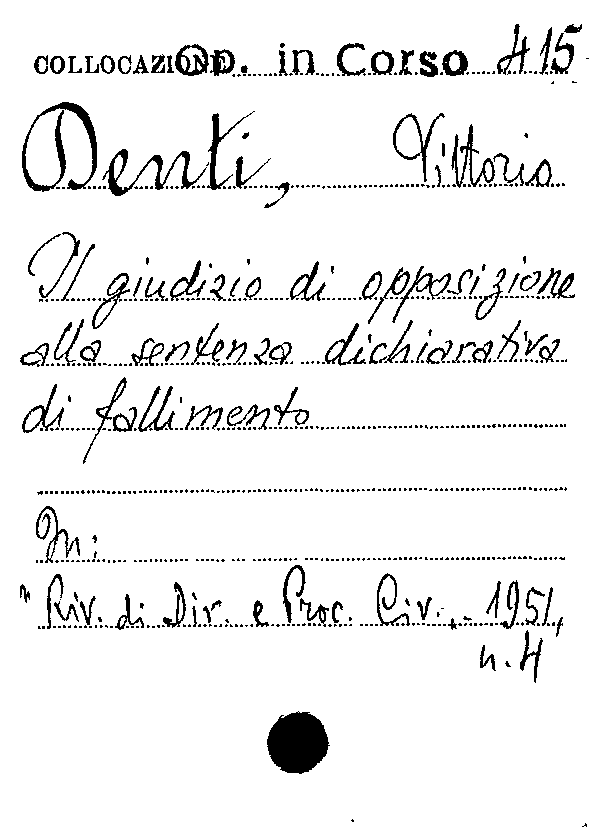 COLLOCAZIONE Op. in Corso 415
Denti, Vittorio
Il giudizio di opposizione
alla sentenza dichiarativa
di fallimento
In:
"Riv. di Dir. e Proc. Civ., 1951,
n. 4